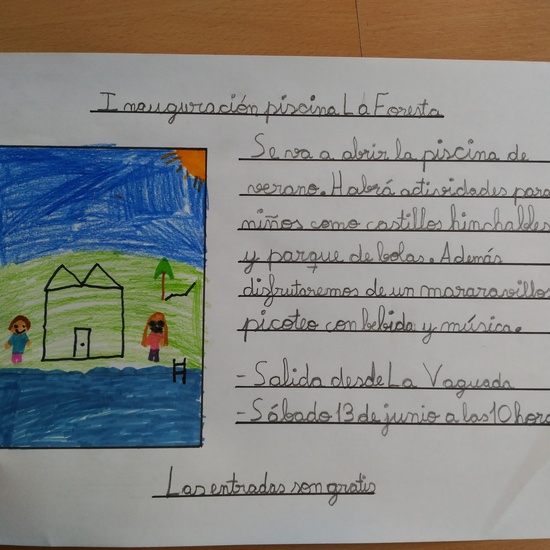 Inauguración piscina La Foresta
Se va a abrir la piscina de
verano. Habrá actividades para
niños como castillos hinchables
y parque de bolas. Además
disfrutaremos de un mararavilloso
picoteo con bebida y música.
- Salida desde La Vaguada
- Sábado 13 de junio a las 10 horas
Las entradas son gratis